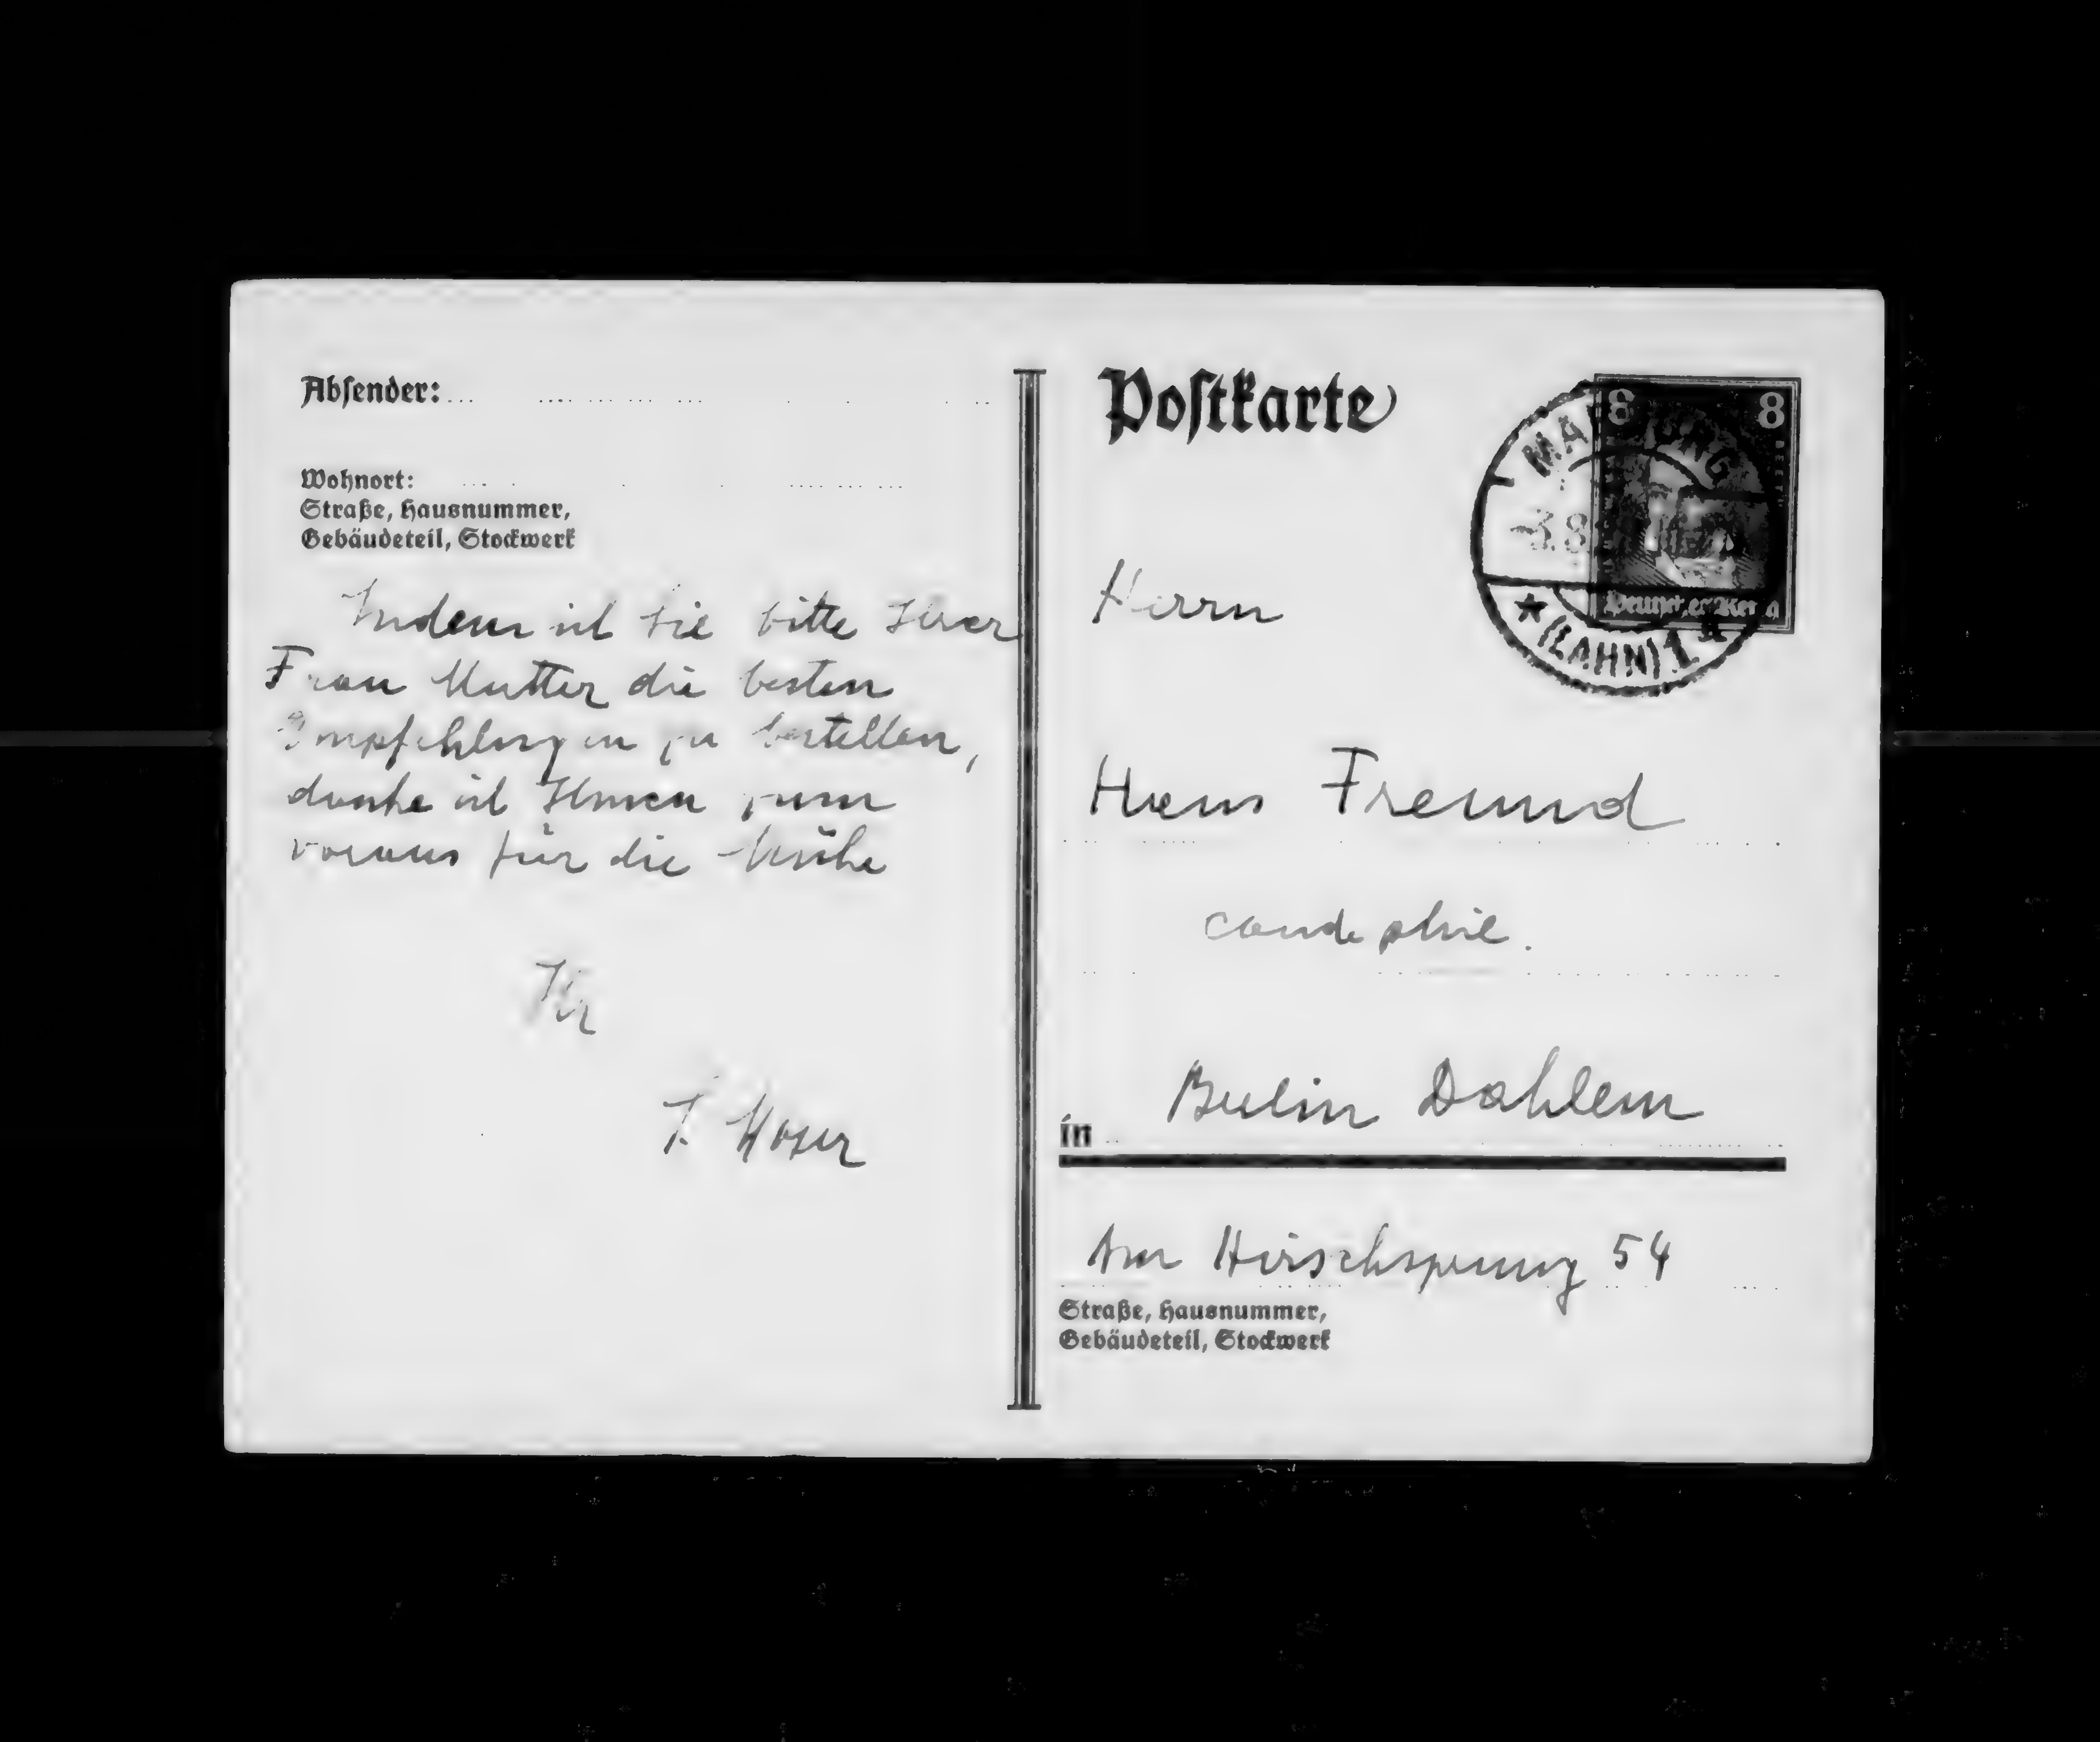 Absender:
Wohnort:
Straße, Hausnummer,
Gebäudeteil, Stockwerk
Indem ich Sie bitte Ihrer
Frau Mutter die besten
Empfehlungen zu bestellen,
danke ich Ihnen zum
voraus für die Mühe
Ihr
Moser
Postkarte
8 8
MARBURG
3.8
Deutsches Reich
* (LAHN) 1
Herrn
Hans Freund
cand phil.
in Berlin Dahlem
Am Hirschsprung 54
Straße, Hausnummer,
Gebäudeteil, Stockwerk